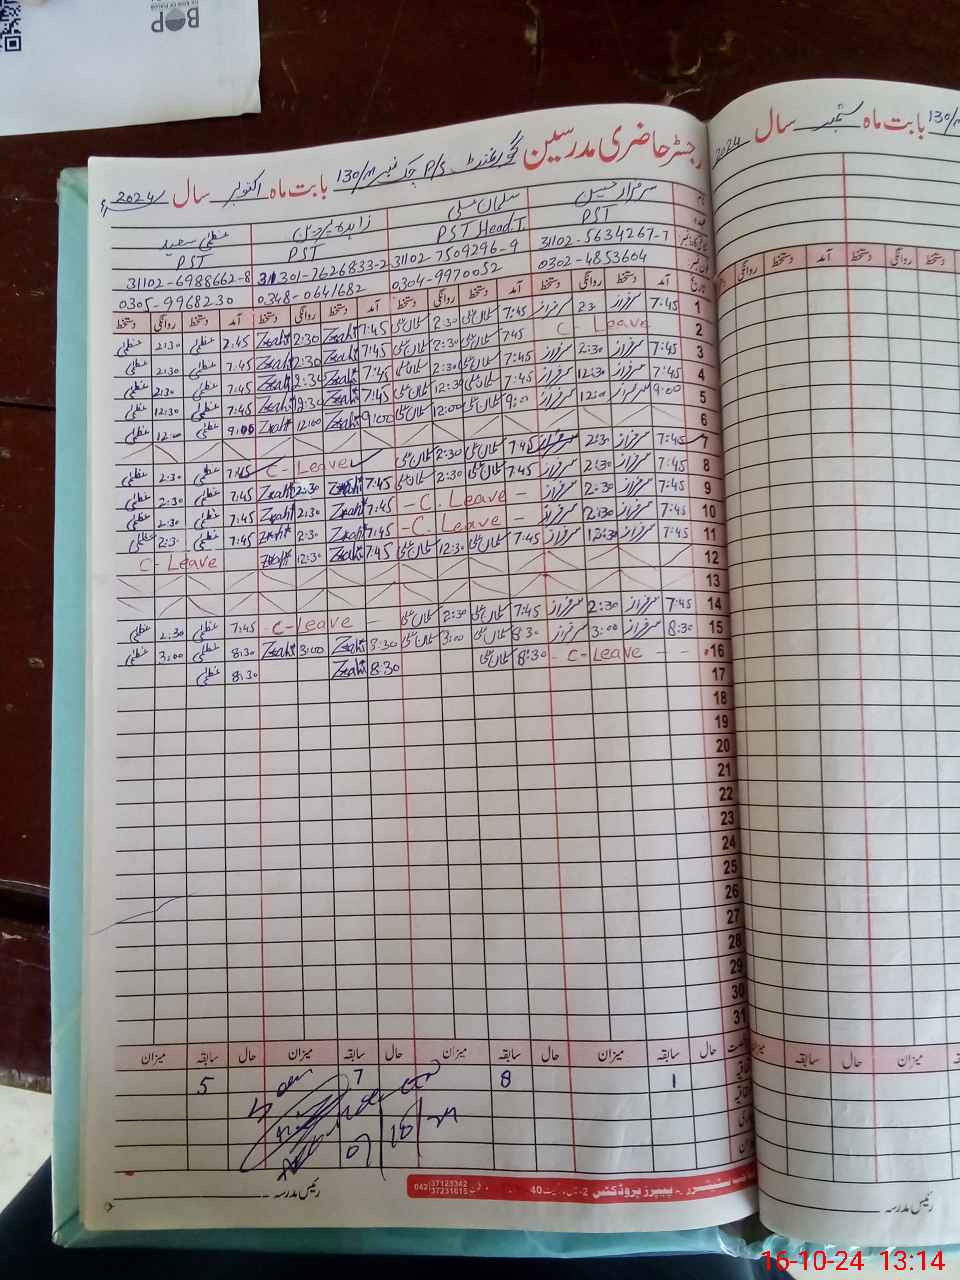 BOP
THE BANK OF PUNJAB
رجسٹر حاضری مدرسین گورنمنٹ P/S چک نمبر 130/M بابت ماہ اکتوبر سال 2024ء
سرفراز حسین
سلمان علی
زاہدہ پروین
عظمیٰ سعید
PST
PST Head.T
PST
PST
31102-5634267-7
31102-7509296-9
31301-2626833-2
31102-6988662-8
0302-4853604
0304-9970052
0348-0641682
0305-9968230
آمد دستخط روانگی دستخط آمد دستخط روانگی دستخط آمد دستخط روانگی دستخط آمد دستخط روانگی دستخط
1 7:45 سرفراز سرفراز 7:45 سلمان علی 2:30 سلمان علی 7:45 Zeahi 2:30 Zeahi عظمیٰ 2:30 عظمیٰ
2 C-Leave 745 سلمان علی 2:30 سلمان علی 7:45 Zeahi 2:30 Zeahi 7:45 عظمیٰ 2:30 عظمیٰ
3 7:45 سرفراز 2:30 سرفراز 7:45 سلمان علی 2:30 سلمان علی 7:45 Zeahi 2:30 Zeahi 7:45 عظمیٰ 2:30 عظمیٰ
4 7:45 سرفراز 12:30 سرفراز 7:45 سلمان علی 12:30 سلمان علی 7:45 Zeahi 12:30 Zeahi 7:45 عظمیٰ 12:30 عظمیٰ
5 9:00 سرفراز 12:00 سرفراز 9:00 سلمان علی 12:00 سلمان علی 9:00 Zeahi 12:00 Zeahi 9:00 عظمیٰ 12:00 عظمیٰ
6
7 7:45 سرفراز 2:30 سرفراز 7:45 سلمان علی 2:30 سلمان علی C-Leave 7:45 عظمیٰ 2:30 عظمیٰ
8 7:45 سرفراز 2:30 سرفراز 7:45 سلمان علی 2:30 سلمان علی 7:45 Zeahi 2:30 Zeahi 7:45 عظمیٰ 2:30 عظمیٰ
9 7:45 سرفراز 2:30 سرفراز - C. Leave - 7:45 Zeahi 2:30 Zeahi 7:45 عظمیٰ 2:30 عظمیٰ
10 7:45 سرفراز 2:30 سرفراز - C. Leave - 7:45 Zeahi 2:30 Zeahi 7:45 عظمیٰ 2:30 عظمیٰ
11 7:45 سرفراز 12:30 سرفراز 7:45 سلمان علی 12:30 سلمان علی 7:45 Zeahi 12:30 Zeahi C-Leave
12
13
14 7:45 سرفراز 2:30 سرفراز 7:45 سلمان علی 2:30 سلمان علی C-Leave - 7:45 عظمیٰ 2:30 عظمیٰ
15 8:30 سرفراز 3:00 سرفراز 8:30 سلمان علی 3:00 سلمان علی 8:30 Zeahi 3:00 Zeahi 8:30 عظمیٰ 3:00 عظمیٰ
16 - C-Leave - - 8:30 سلمان علی 8:30 Zeahi 8:30 عظمیٰ
17
18
19
20
21
22
23
24
25
26
27
28
29
30
31
حال سابقہ میزان حال سابقہ میزان حال سابقہ میزان حال سابقہ میزان
1 8 7 5
رئیس مدرسہ
پیپرز پروڈکٹس
042 37123342
37231615
بابت ماہ ستمبر سال 2024
130/M
آمد دستخط روانگی دستخط
حال سابقہ میزان
رئیس مدرسہ
16-10-24 13:14